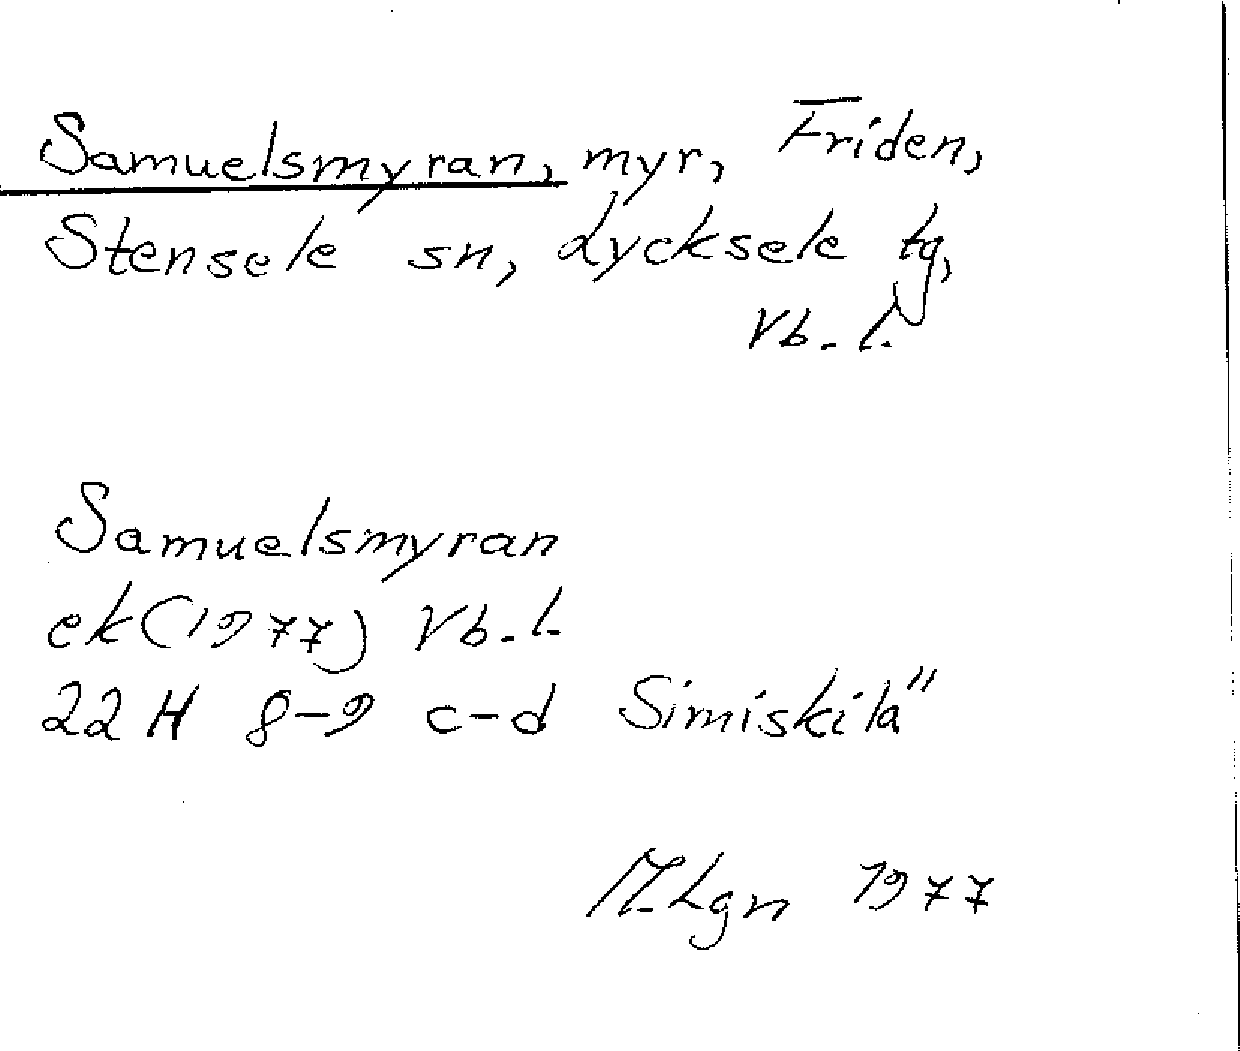 Samuelsmyran, myr, Friden,
Stensele sn, Lycksele tg,
Vb. l.
Samuelsmyran
ek (1977) Vb. l.
22 H 8-9 c-d Simiskilä
M. Lgn 1977